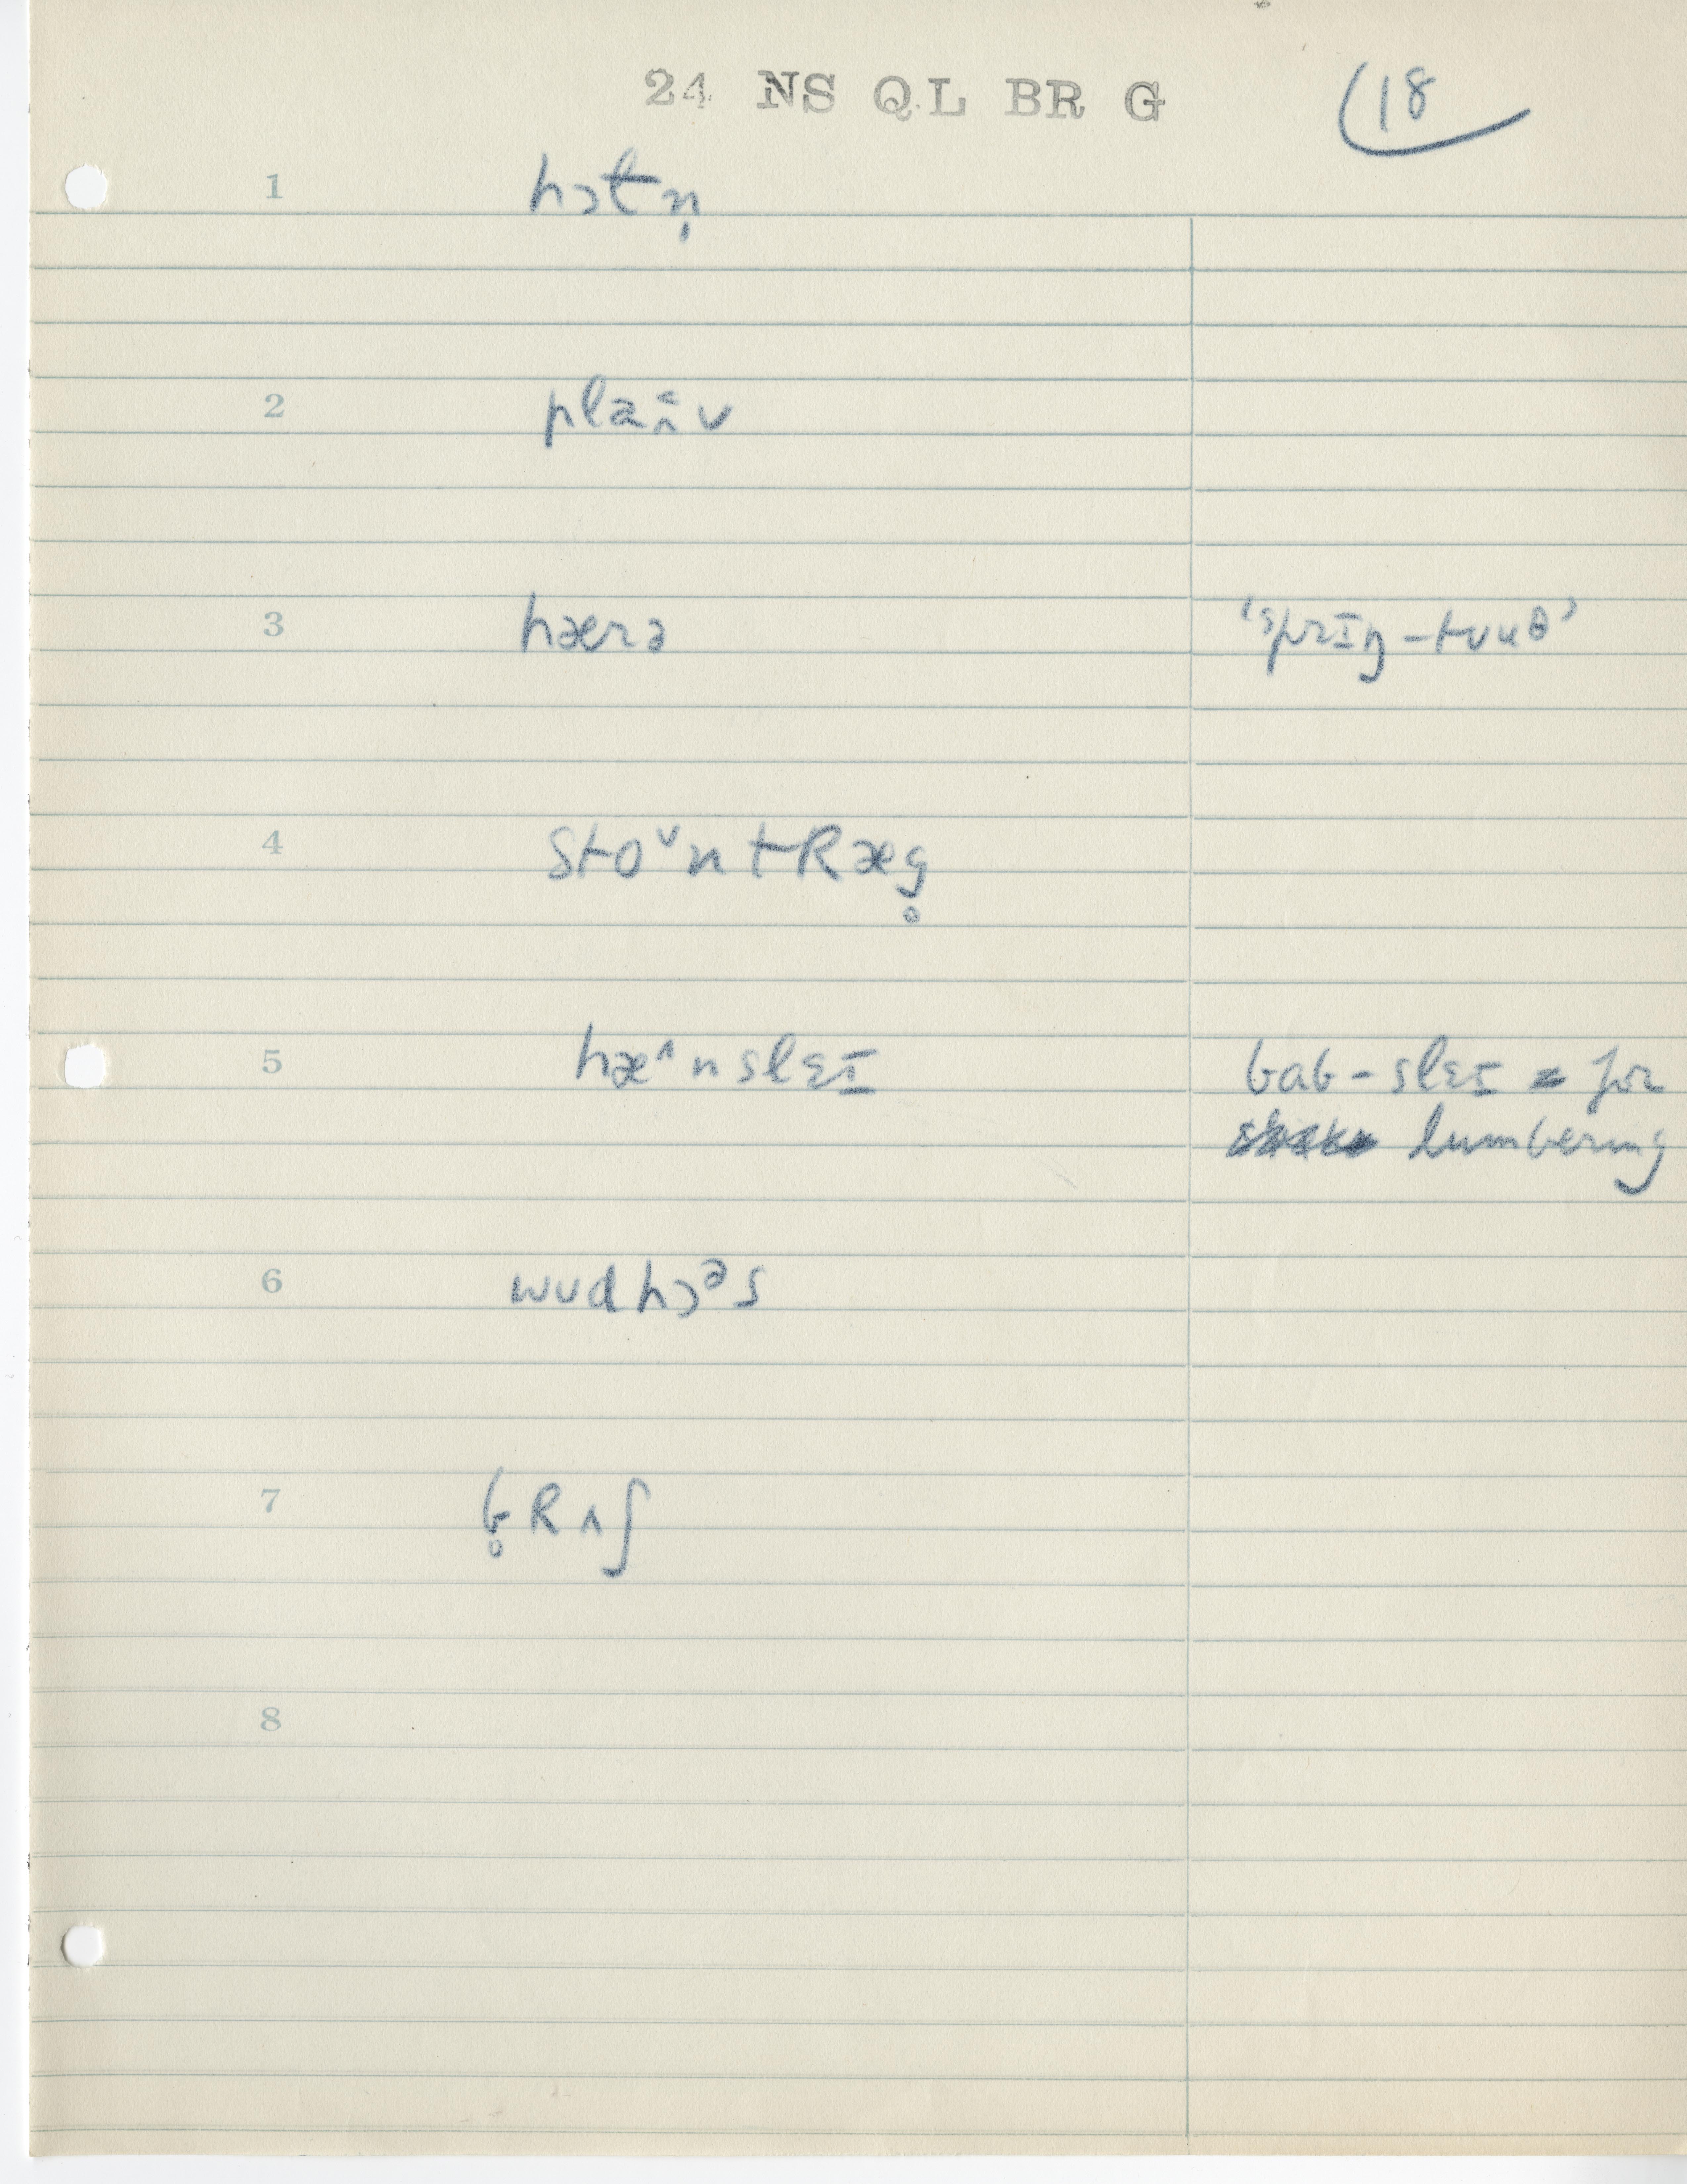 24 NS QL BR G
18
1 hɔtn̩
2
3 hærə ‘sprɪŋ-tuuθ’
4 stoᵛn tRæg̥
5 hæ^nslɛɪ bab-slɛɪ = for
lumbering
6 wudhɔᵊs
7 b̥Rʌʃ
8